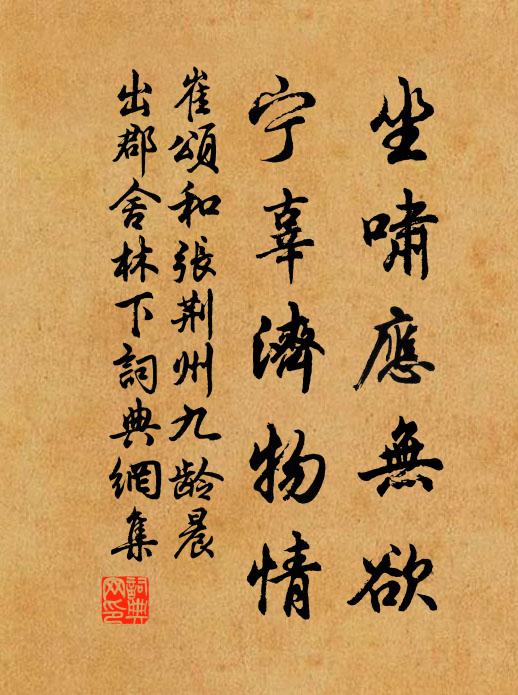 坐嘯應無欲
宁辜濟物情
崔頌和張荆州九齡晨
出郡舍林下詞典網集
詞典
网印